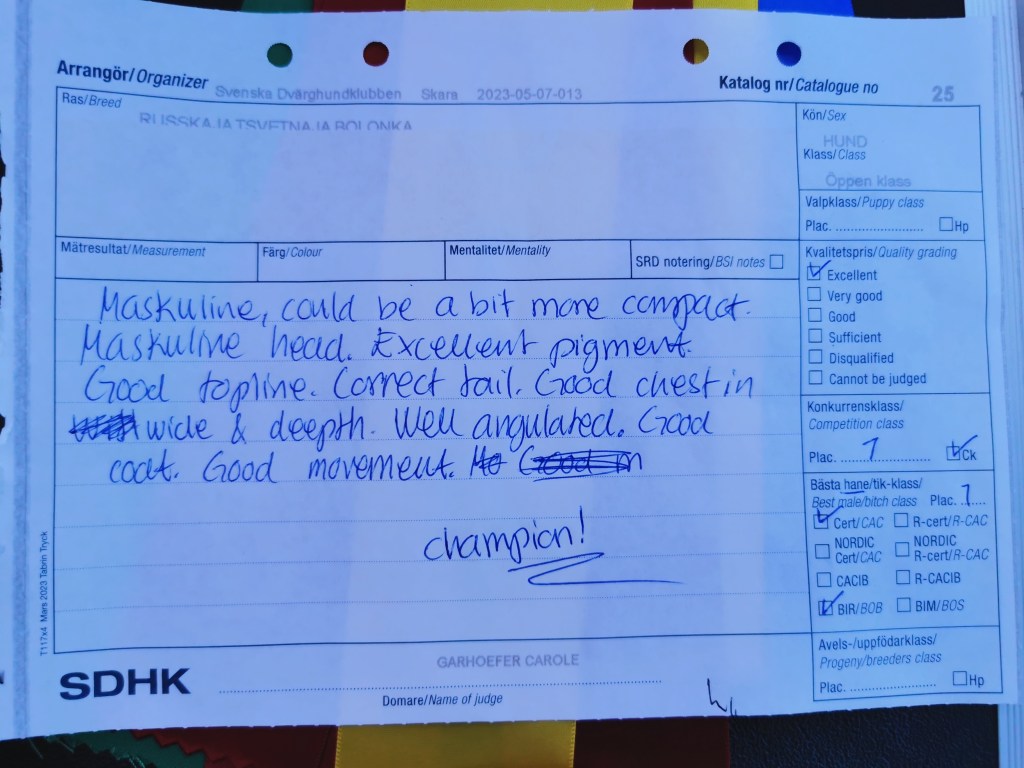 Arrangör/Organizer Svenska Dvärghundklubben Skara 2023-05-07-013
Katalog nr/Catalogue no 25
Ras/Breed
RUSSKAJA TSVETNAJA BOLONKA
Kön/Sex
HUND
Klass/Class
Öppen klass
Valpklass/Puppy class
Plac. ........................ Hp
Mätresultat/Measurement
Färg/Colour
Mentalitet/Mentality
SRD notering/BSI notes
Kvalitetspris/Quality grading
Excellent
Very good
Good
Sufficient
Disqualified
Cannot be judged
Maskuline, could be a bit more compact.
Maskuline head. Excellent pigment.
Good topline. Correct tail. Good chest in
wide & deepth. Well angulated. Good
coat. Good movement.
champion!
Konkurrensklass/
Competition class
Plac. 1 Ck
Bästa hane/tik-klass/
Best male/bitch class Plac. 1
Cert/CAC R-cert/R-CAC
NORDIC Cert/CAC NORDIC R-cert/R-CAC
CACIB R-CACIB
BIR/BOB BIM/BOS
Avels-/uppfödarklass/
Progeny/breeders class
Plac. ........................ Hp
T117x4 Mars 2023 Tabrin Tryck
SDHK
GARHOEFER CAROLE
Domare/Name of judge